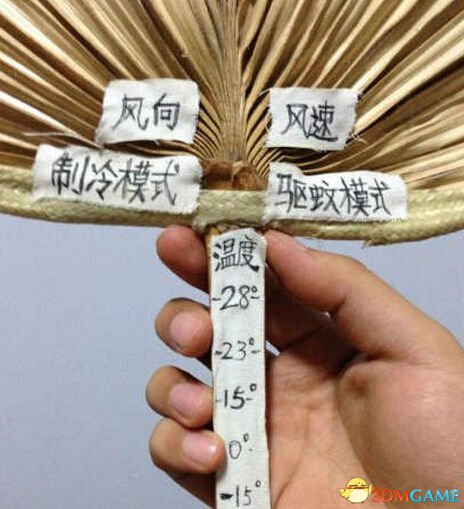 风向
风速
制冷模式
驱蚊模式
温度
-28°-
-23°-
-15°-
0°-
-15°
3DMGAME